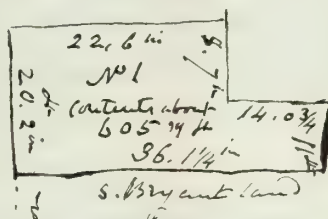 22, 6 in
8. 7 in
20. 2 in
No 1
contents about
605 
14. 0¾
36. 1¼ in
S. Bryant land